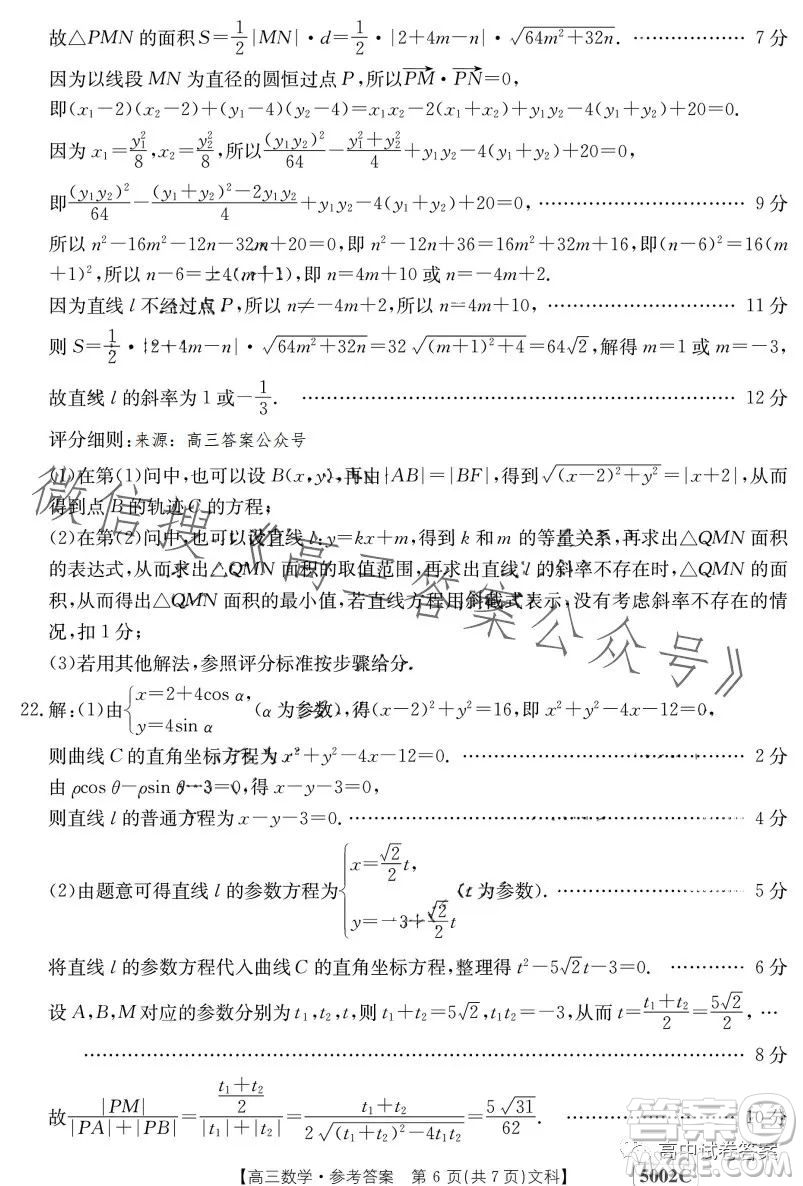 故△PMN 的面积 S=1/2|MN|·d=1/2·|2+4m−n|·√(64m²+32n). ……………… 7 分
因为以线段 MN 为直径的圆恒过点 P,所以PM→·PN→=0,
即(x₁−2)(x₂−2)+(y₁−4)(y₂−4)=x₁x₂−2(x₁+x₂)+y₁y₂−4(y₁+y₂)+20=0.
因为 x₁=y₁²/8,x₂=y₂²/8,所以(y₁y₂)²/64−(y₁²+y₂²)/4+y₁y₂−4(y₁+y₂)+20=0,
即(y₁y₂)²/64−((y₁+y₂)²−2y₁y₂)/4+y₁y₂−4(y₁+y₂)+20=0, ……………… 9 分
所以 n²−16m²−12n−32m+20=0,即 n²−12n+36=16m²+32m+16,即(n−6)²=16(m
+1)²,所以 n−6=±4(m+1),即 n=4m+10 或 n=−4m+2.
因为直线 l 不经过点 P,所以 n≠−4m+2,所以 n=4m+10, ……………… 11 分
则 S=1/2·|2+4m−n|·√(64m²+32n)=32√((m+1)²+4)=64√2,解得 m=1 或 m=−3,
故直线 l 的斜率为 1 或−1/3. ……………… 12 分
评分细则:来源:高三答案公众号
(1)在第(1)问中,也可以设 B(x,y),再由|AB|=|BF|,得到√((x−2)²+y²)=|x+2|,从而
得到点 B 的轨迹 C 的方程;
(2)在第(2)问中,也可以设直线 l:y=kx+m,得到 k 和 m 的等量关系,再求出△QMN 面积
的表达式,从而求出△QMN 面积的取值范围,再求出直线 l 的斜率不存在时,△QMN 的面
积,从而得出△QMN 面积的最小值,若直线方程用斜截式表示,没有考虑斜率不存在的情
况,扣 1 分;
(3)若用其他解法,参照评分标准按步骤给分.
微信搜《高三答案公众号》
22.解:(1)由{x=2+4cos α, y=4sin α (α 为参数),得(x−2)²+y²=16,即 x²+y²−4x−12=0,
则曲线 C 的直角坐标方程为 x²+y²−4x−12=0. ……………… 2 分
由 ρcos θ−ρsin θ−3=0,得 x−y−3=0,
则直线 l 的普通方程为 x−y−3=0. ……………… 4 分
(2)由题意可得直线 l 的参数方程为{x=√2/2 t, y=−3+√2/2 t (t 为参数). ……………… 5 分
将直线 l 的参数方程代入曲线 C 的直角坐标方程,整理得 t²−5√2t−3=0. ………… 6 分
设 A,B,M 对应的参数分别为 t₁,t₂,t,则 t₁+t₂=5√2,t₁t₂=−3,从而 t=(t₁+t₂)/2=5√2/2, …
……………… 8 分
故|PM|/(|PA|+|PB|)=((t₁+t₂)/2)/(|t₁|+|t₂|)=(t₁+t₂)/(2√((t₁+t₂)²−4t₁t₂))=5√31/62. ……………… 10 分
【高三数学·参考答案 第 6 页(共 7 页)文科】
5002C
高中试卷答案